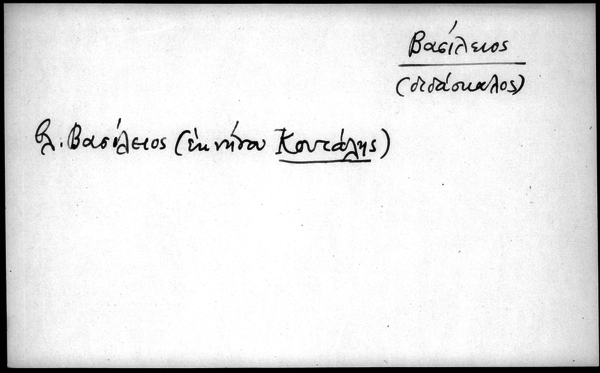 Βασίλειος
(διδάσκαλος)
βλ. Βασίλειος (ἐκ νήσου Κουτάλης)